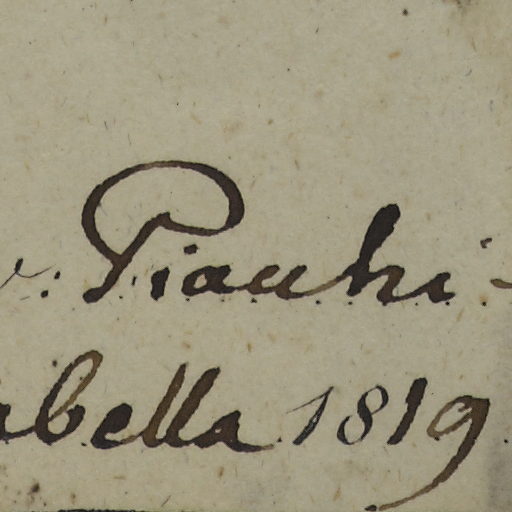 v. Piauhi-
abella 1819